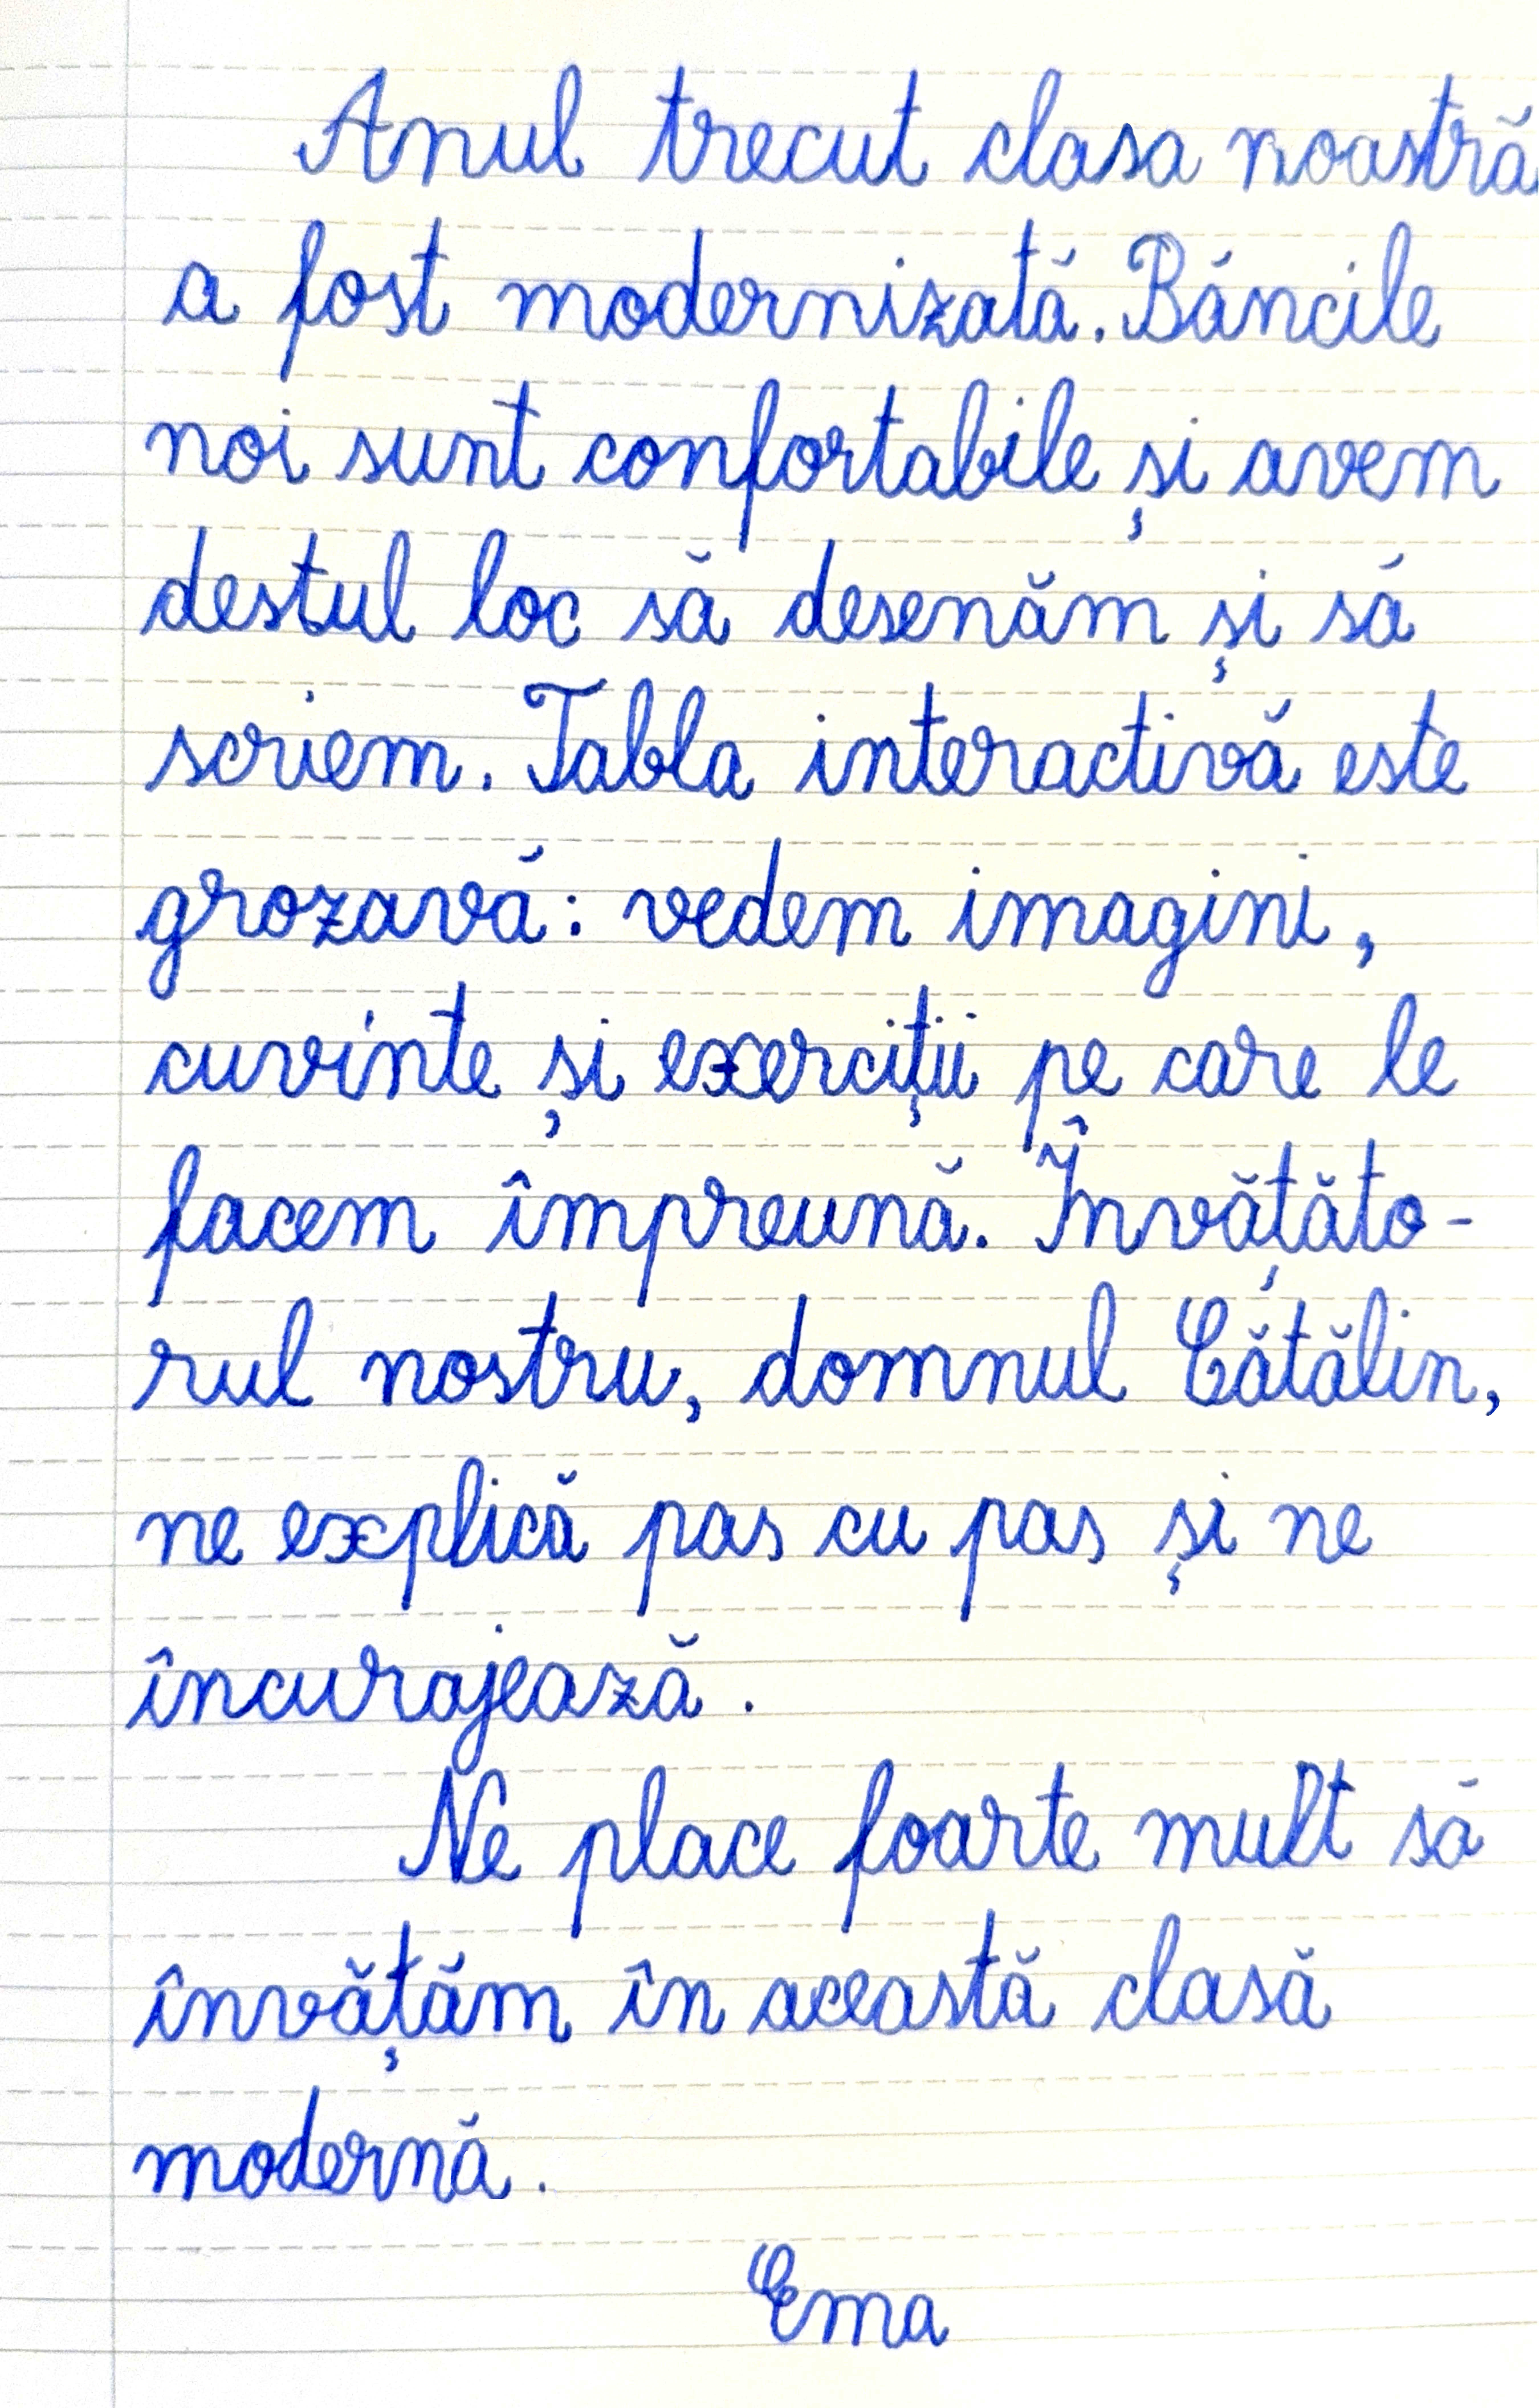 Anul trecut clasa noastră
a fost modernizată. Băncile
noi sunt confortabile și avem
destul loc să desenăm și să
scriem. Tabla interactivă este
grozavă: vedem imagini,
cuvinte și exerciții pe care le
facem împreună. Învățăto-
rul nostru, domnul Cătălin,
ne explică pas cu pas și ne
încurajează.
Ne place foarte mult să
învățăm în această clasă
modernă.
Ema